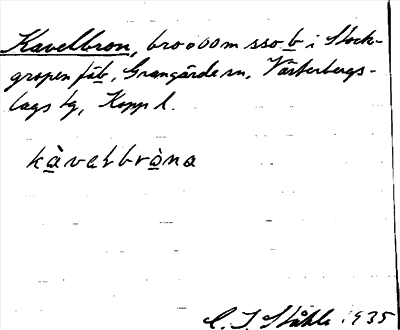 Kavelbron, bro 600 m sso b i Stock-
gropen fäb, Grangärde sn, Västerbergs-
lags tg, Kopp l.
kàvelbròna
C. I. Ståhle 1935